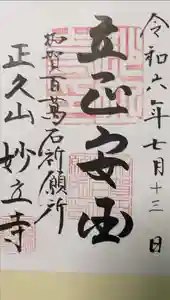 令和六年七月十三日
立正安国
加賀百萬石祈願所
正久山妙立寺